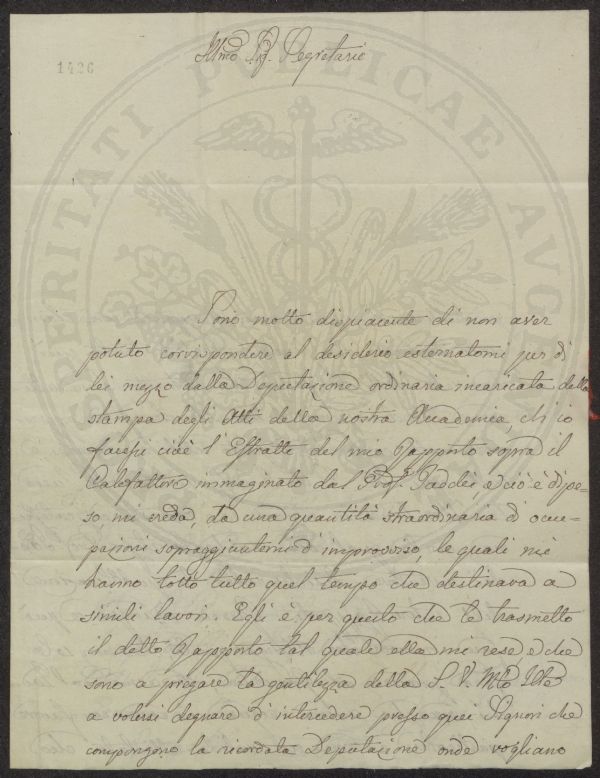 1426
Illmo Sig. Segretario
Sono molto dispiacente di non aver
potuto corrispondere al desiderio esternatomi per di
lei mezzo dalla Deputazione ordinaria incaricata della
stampa degli Atti della nostra Accademia, ch'io
facessi cioè l'Estratto del mio Rapporto sopra il
Calefattore immaginato dal Prof. Taddei e ciò è dipe=
so, mi creda, da una quantità straordinaria d'occu=
pazioni sopraggiuntemi d'improvviso, le quali mi
hanno tolto tutto quel tempo che destinava a
simili lavori. Egli è per questo che le trasmetto
il detto Rapporto tal quale ella mi rese, e che
sono a pregare la gentilezza della S. V. Mto Illre
a volersi degnare d'intercedere presso quei Signori che
compongono la ricordata Deputazione onde vogliano
PROSPERITATI PVBLICAE AVGE